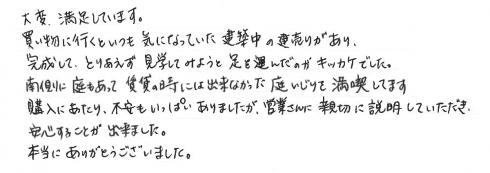 大変、満足しています。
買い物に行くといつも気になっていた建築中の建売りがあり、
完成して、とりあえず見学してみようと足を運んだのがキッカケでした。
南側に庭もあって賃貸の時には出来なかった庭いじりを満喫してます
購入にあたり、不安もいっぱいありましたが、営業さんに親切に説明していただき、
安心することが出来ました。
本当にありがとうございました。